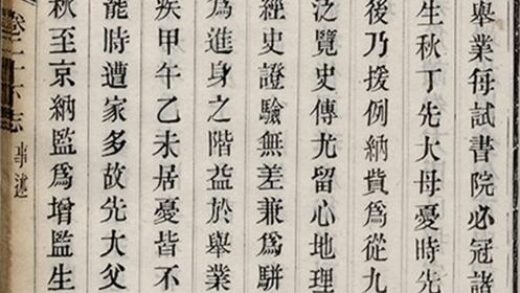 舉業每試書院必冠諸
生秋丁先大母憂時先
後乃援例納貲爲從九
泛覽史傳尤留心地理
經史證驗無差兼爲駢
爲進身之階益於舉業
疾甲午乙未居憂皆不
龍時遭家多故先大父
秋至京納監爲增監生
卷二十下志
事述